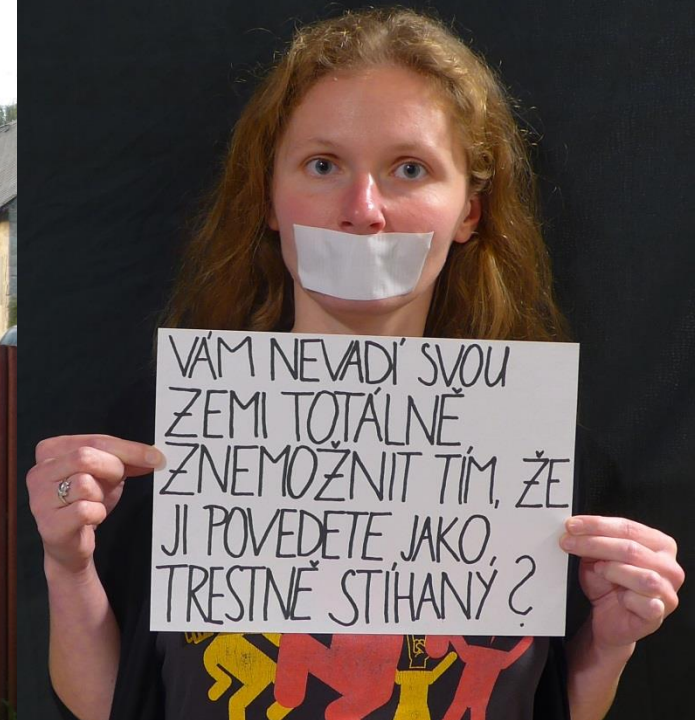 VÁM NEVADÍ SVOU
ZEMI TOTÁLNĚ
ZNEMOŽNIT TÍM, ŽE
JI POVEDETE JAKO,
TRESTNĚ STÍHANÝ?